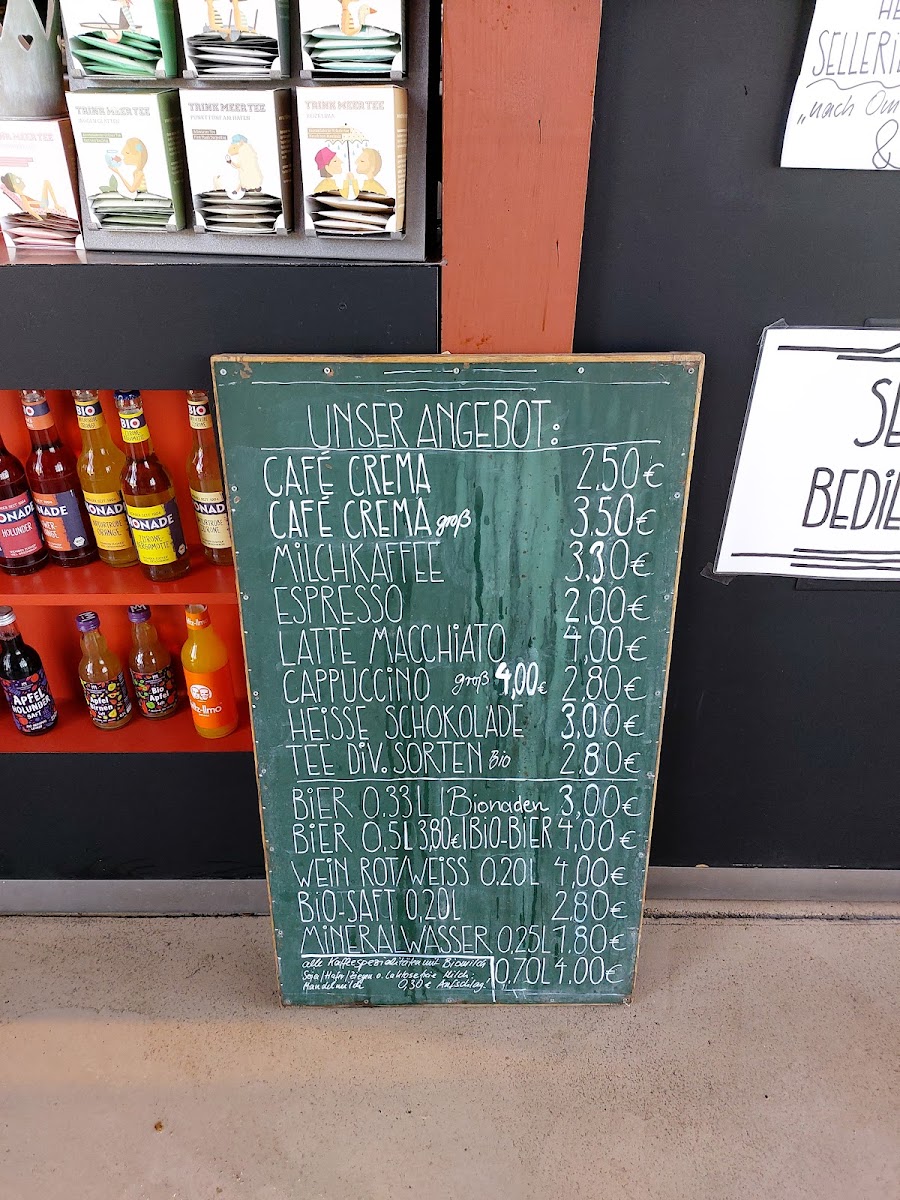 TRINK MEER TEE
TRINK MEER TEE
TRINK MEER TEE
HE
SELLERI
"nach Om
&
SE
BEDIE
BIO
BIO
BIO
ONADE
HOLUNDER
ONADE
ONADE
ONADE
ZITRONE-
BERGAMOTTE
APFEL
HOLUNDER
SAFT
Bio
Apfel
UNSER ANGEBOT:
CAFÉ CREMA 2,50€
CAFÉ CREMA groß 3,50€
MILCHKAFFEE 3,30€
ESPRESSO 2,00€
LATTE MACCHIATO 4,00€
CAPPUCCINO groß 4,00€ 2,80€
HEISSE SCHOKOLADE 3,00€
TEE DIV. SORTEN Bio 2,80€
BIER 0,33L | Bionaden 3,00€
BIER 0,5L 3,80€ | BIO-BIER 4,00€
WEIN ROT/WEISS 0,20L 4,00€
BIO-SAFT 0,20L 2,80€
MINERALWASSER 0,25L 1,80€
0,70L 4,00€
alle Kaffeespezialitäten mit Biomilch
Soja/Hafer/Ziegen o. Laktosefreie Milch:
Mandelmilch 0,30€ Aufschlag!